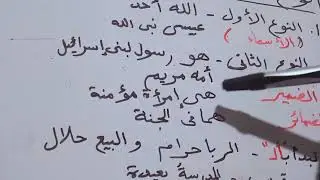 ١. النوع الأول - الله أحد
(الأسماء) عيسى نبي الله
النوع الثاني - هو رسول لبني إسرائيل
أمه مريم
الضمير هي امرأة مؤمنة
هما في الجنة
- الربا حرام و البيع حلال
المدرسة بعيدة